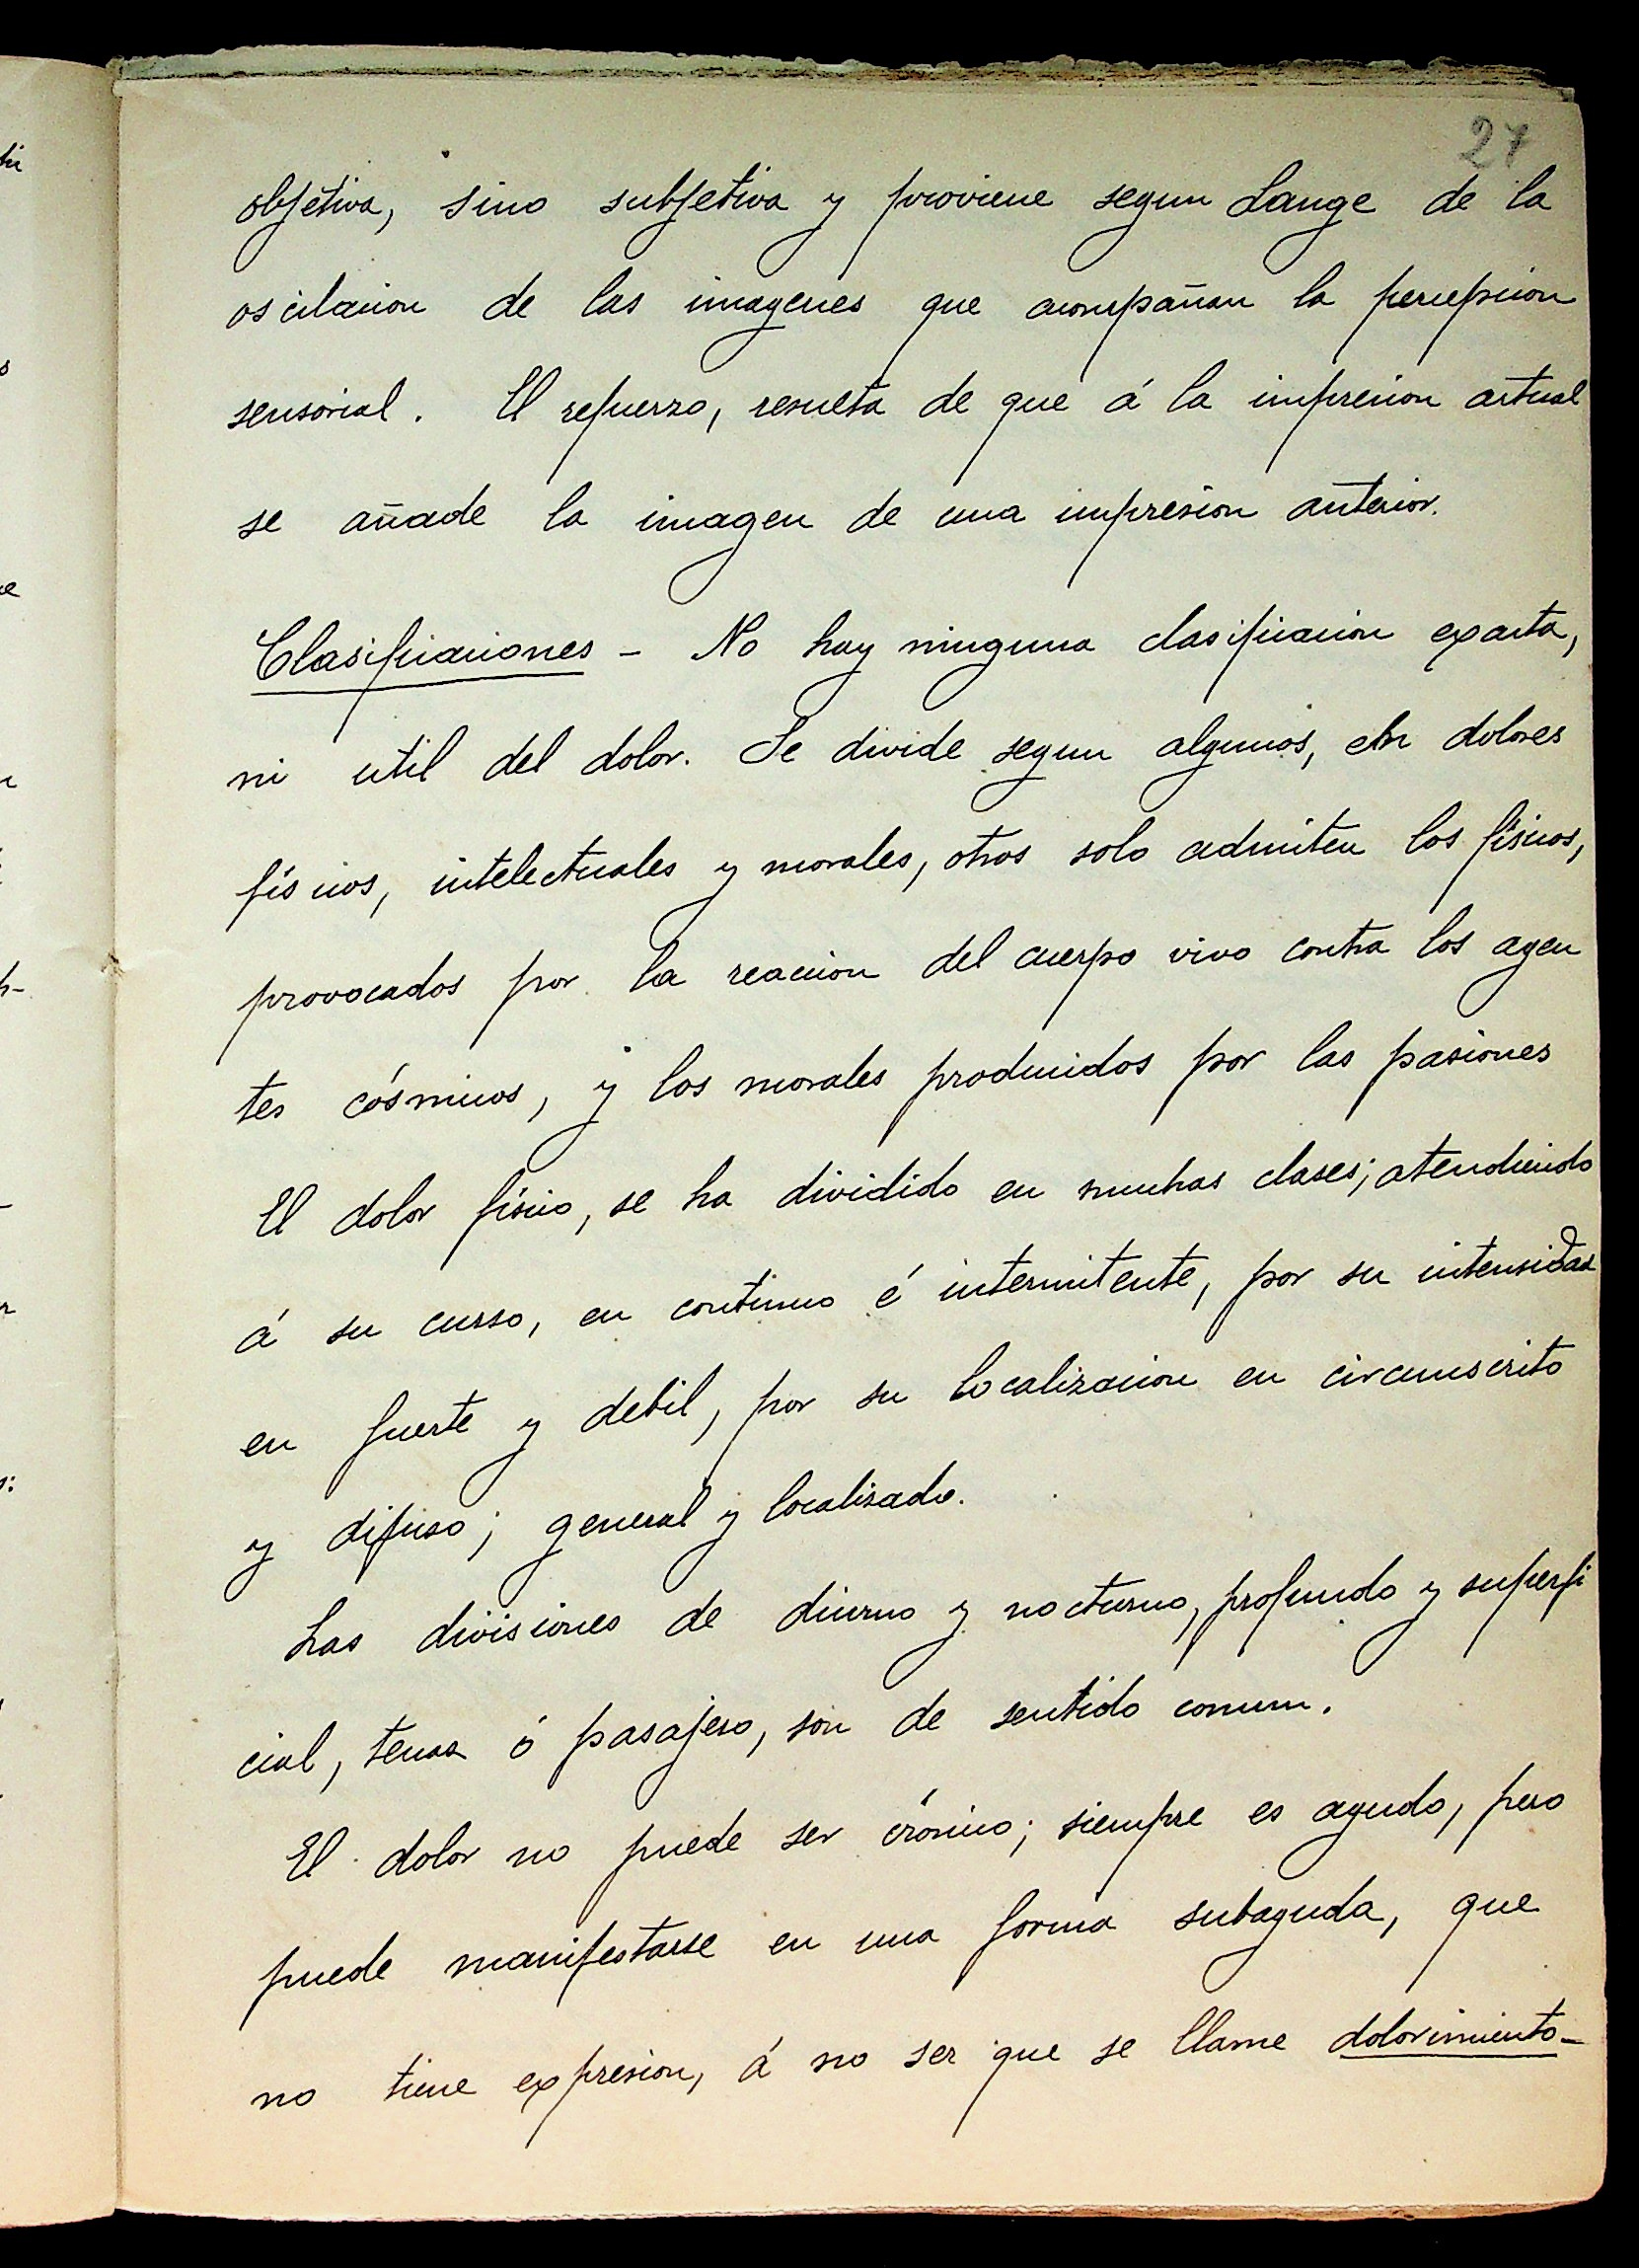 27
objétiva, sino subjetiva y proviene segun Lange de la
oscilacion de las imagenes que acompañan la percepcion
sensorial. El refuerzo, resulta de que á la impresion actual
se añade la imagen de una impresion anterior.
Clasificaciones - No hay ninguna clasificacion exacta,
ni util del dolor. Se divide segun algunos, en dolores
físicos, intelectuales y morales, otros solo admiten los físicos,
provocados por la reaccion del cuerpo vivo contra los agen
tes cósmicos, y los morales producidos por las pasiones
El dolor físico, se ha dividido en muchas clases; atendiendo
á su curso, en continuo é intermitente, por su intensidad
en fuerte y debil, por su localizacion en circunscrito
y difuso; general y localizado.
Las divisiones de diurno y nocturno, profundo y superfi
cial, tenaz ó pasajero, son de sentido comun.
El dolor no puede ser crónico; siempre es agudo, pero
puede manifestarse en una forma subaguda, que
no tiene expresion, á no ser que se llame dolorimiento-